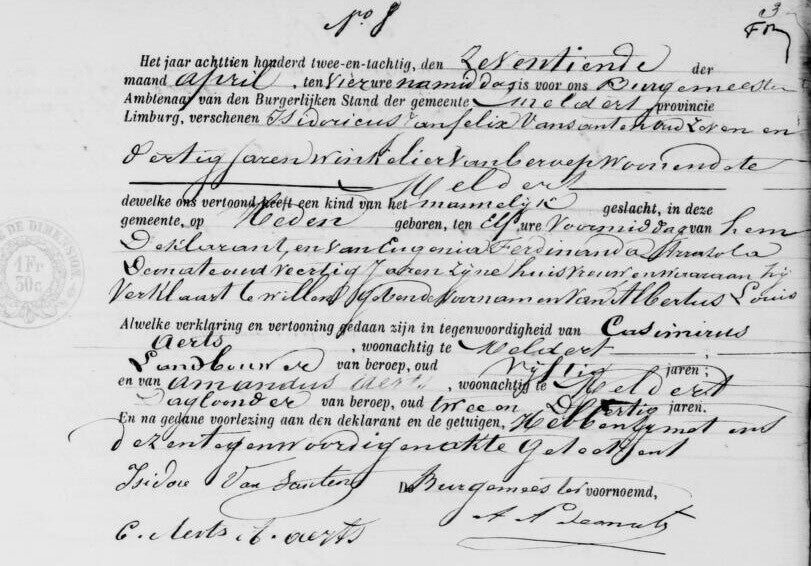 No 8
3
Het jaar achttien honderd twee-en-tachtig, den Zeventiende der
maand april, ten vier ure namiddag is voor ons Burgemeester
Ambtenaar van den Burgerlijken Stand der gemeente Meldert provincie
Limburg, verschenen Isidoricus Vansanten oud Zeven en
dertig Jaren Winkelier van beroep Woonende te
Meldert
dewelke ons vertoond heeft een kind van het mannelijk geslacht, in deze
gemeente, op Heden geboren, ten Elf ure Voormiddag van hem
Deklarant, en van Eugenia Ferdinanda
oud Veertig Jaren Zijne huisvrouw en waaraan hij
Verklaart te willen geven de Voornamen van Albertus Louis
Alwelke verklaring en vertooning gedaan zijn in tegenwoordigheid van Casimirus
Aerts, woonachtig te Meldert
Landbouwer van beroep, oud Vijftig jaren;
en van amandus aerts, woonachtig te Meldert
Daglooner van beroep, oud twee en dertig jaren.
En na gedane voorlezing aan den deklarant en de getuigen, Hebben zij met ons
dezen tegenwoordigen akte Geteekent
Isidore Van Santen De Burgemeester voornoemd,
C. Aerts A. aerts
DE DIMENSION
1 Fr
50c